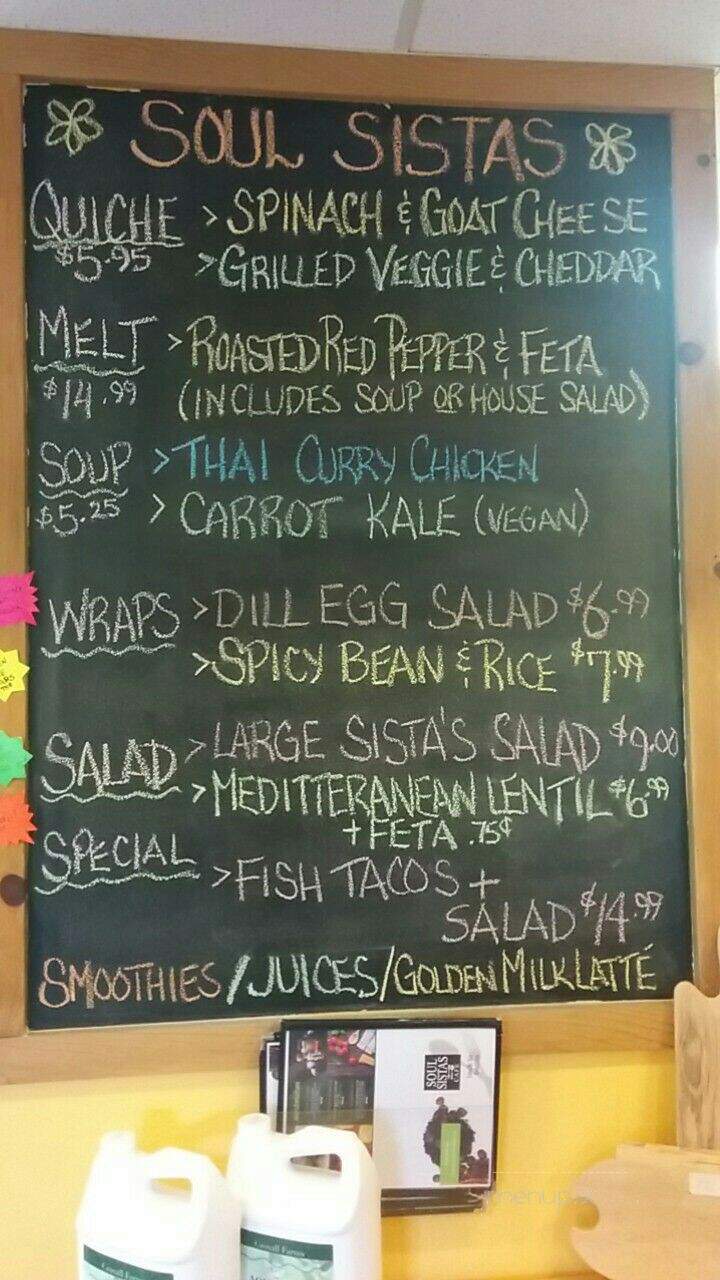 SOUL SISTAS
QUICHE > SPINACH & GOAT CHEESE
$5.95 > GRILLED VEGGIE & CHEDDAR
MELT > ROASTED RED PEPPER & FETA
$14.99 (INCLUDES SOUP OR HOUSE SALAD)
SOUP > THAI CURRY CHICKEN
$5.25 > CARROT KALE (VEGAN)
WRAPS > DILL EGG SALAD $6.99
> SPICY BEAN & RICE $7.99
SALAD > LARGE SISTA'S SALAD $9.00
> MEDITTERANEAN LENTIL $6.99
+ FETA .75¢
SPECIAL > FISH TACOS +
SALAD $14.99
SMOOTHIES / JUICES / GOLDEN MILK LATTÉ
SOUL
SISTAS
CAFE
menupix